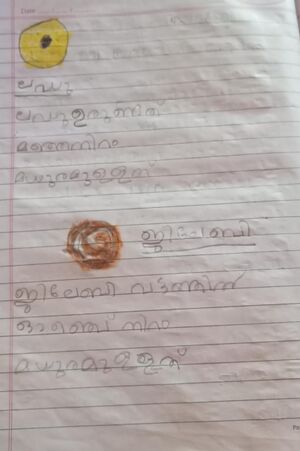 Date
ലഡു
ലഡു ഉരുണ്ടത്
മഞ്ഞനിറം
മധുരമുള്ളത്
ജിലേബി
ജിലേബി വട്ടത്തിൽ
ഓറഞ്ച് നിറം
മധുരമുള്ളത്